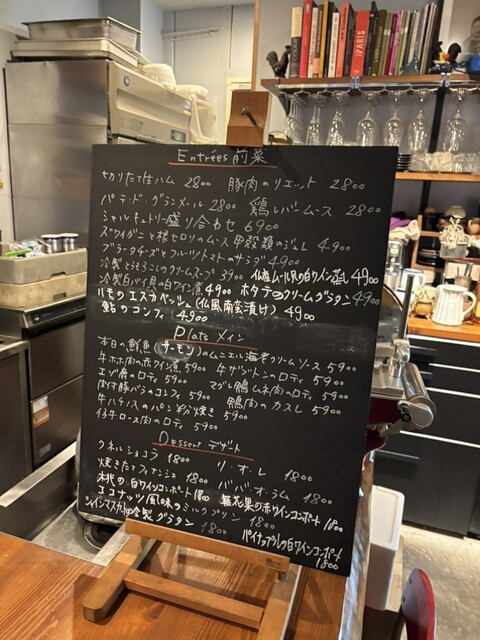 Entrées 前菜
切りたて生ハム 2800 豚肉のリエット 2800
パテ・ド・グランメール 2800 鶏レバームース 2800
シャルキュトリー盛り合わせ 6900
ズワイガニと根セロリのムース 甲殻類のジュレ 4900
ブラータチーズとフルーツトマトのサラダ 4900
冷製とうもろこしのクリームスープ 3900 仏産ムール貝の白ワイン蒸し 4900
冷製白バイ貝の白ワイン煮 4900 ホタテのクリームグラタン 4900
いものエスカベッシュ(仏風南蛮漬け) 4900
鮎のコンフィ 4900
Plats メイン
本日の鮮魚(サーモン)のムニエル 海老クリームソース 5900
牛ホホ肉の赤ワイン煮 5900 牛ザブトンのロティ 5900
エゾ鹿のロティ 5900 マグレ鴨ムネ肉のロティ 5900
肉付豚バラのコンフィ 5900 鴨肉のカスレ 5900
牛ハチノスのパン粉焼き 5900
仔牛ロース肉のロティ 5900
Dessert デザート
クネルショコラ 1800 リ・オ・レ 1800
焼きたてフィナンシェ 1800 ババ・オ・ラム 1800
桃の白ワインコンポート 1800 無花果の赤ワインコンポート 1800
ココナッツ風味のミルクプリン 1800
シャインマスカットの冷製グラタン 1800 パイナップルの白ワインコンポート
1800
PARIS